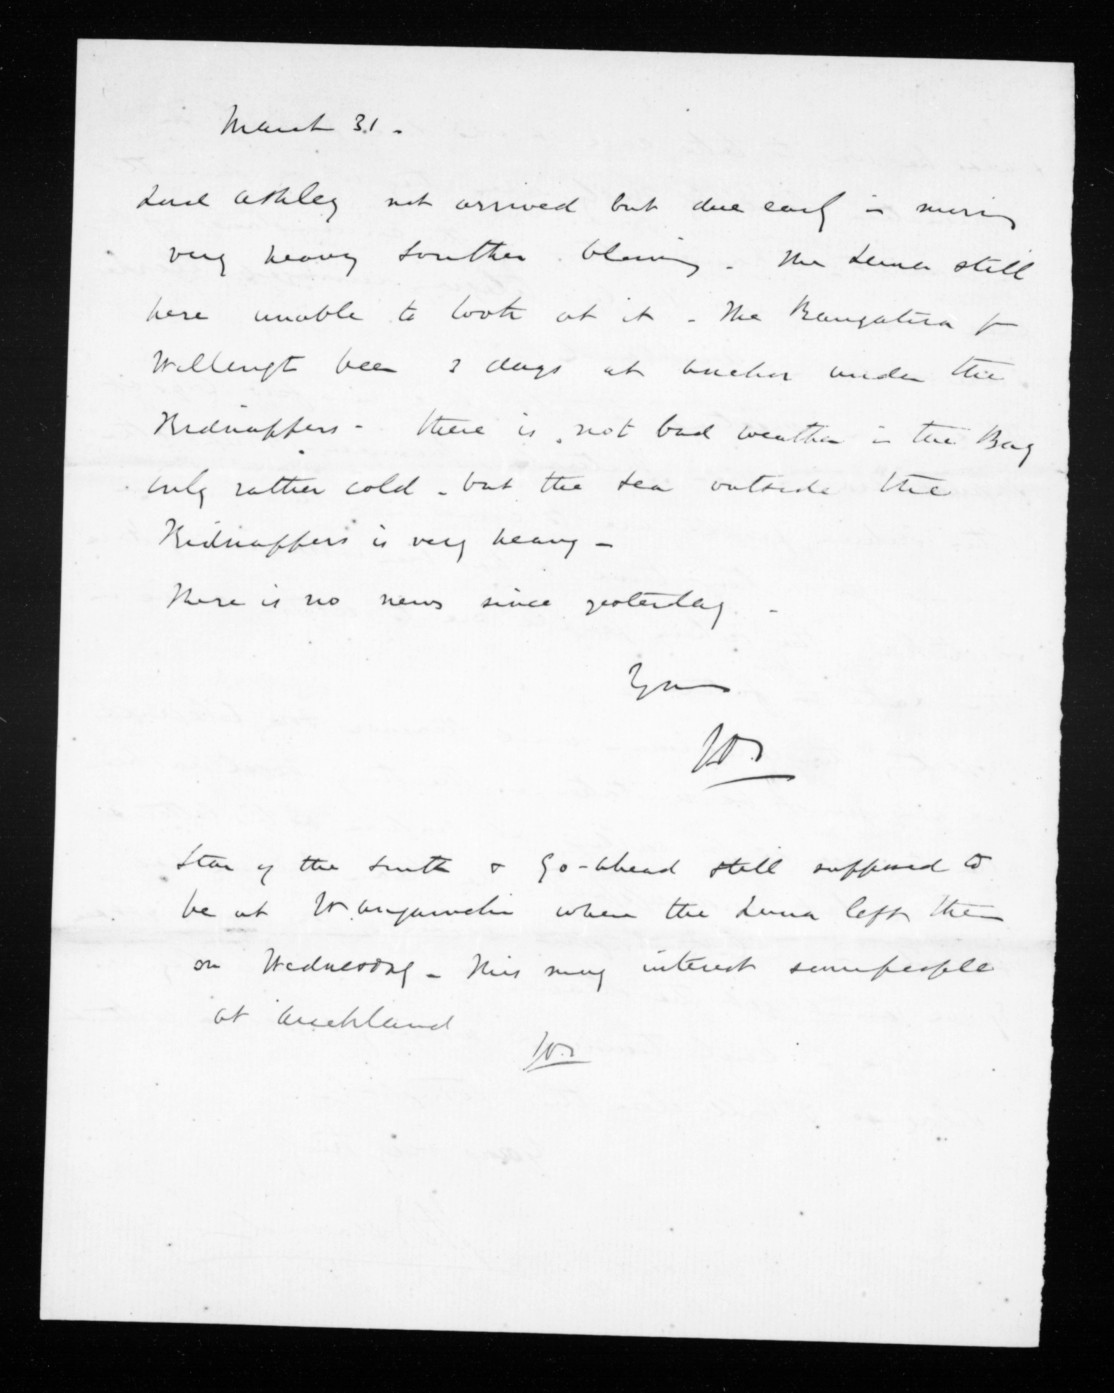 March 31 -
Lord Ashley not arrived but due early in morning
very heavy souther blowing - The Luna still
here unable to look at it - The Rangatira fr
Wellingt been 3 days at anchor under the
Kidnappers - there is not bad weather in the Bay
only rather cold - but the sea outside the
Kidnappers is very heavy -
There is no news since yesterday -
Yours
Star of the South & Go-ahead still supposed to
be at Wangawehi where the Luna left them
on Wednesday - This may interest some people
at Auckland